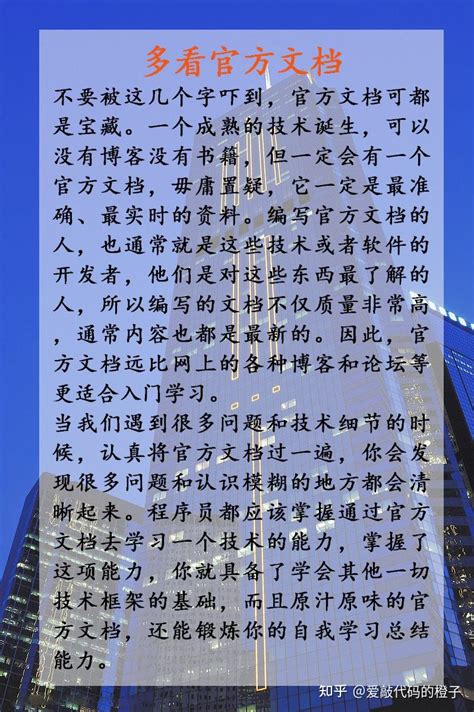 多看官方文档
不要被这几个字吓到，官方文档可都
是宝藏。一个成熟的技术诞生，可以
没有博客没有书籍，但一定会有一个
官方文档，毋庸置疑，它一定是最准
确、最实时的资料。编写官方文档的
人，也通常就是这些技术或者软件的
开发者，他们是对这些东西最了解的
人，所以编写的文档不仅质量非常高
，通常内容也都是最新的。因此，官
方文档远比网上的各种博客和论坛等
更适合入门学习。
当我们遇到很多问题和技术细节的时
候，认真将官方文档过一遍，你会发
现很多问题和认识模糊的地方都会清
晰起来。程序员都应该掌握通过官方
文档去学习一个技术的能力，掌握了
这项能力，你就具备了学会其他一切
技术框架的基础，而且原汁原味的官
方文档，还能锻炼你的自我学习总结
能力。
知乎 @爱敲代码的橙子